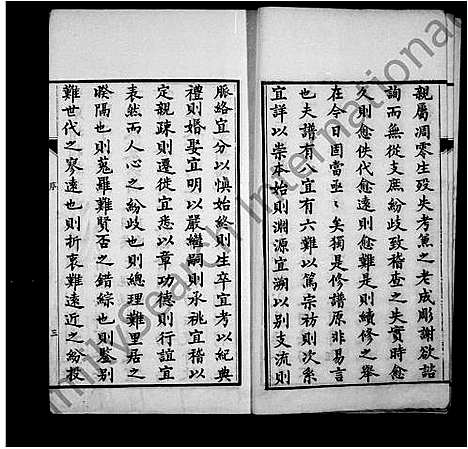 親屬凋零生歿失考兼之老成彫謝欲諮
詢而無從支庶紛歧致稽查之失實時愈
久則愈佚代愈遠則愈難是則續修之舉
在今日固當亟亟矣獨是修譜原非易言
也夫譜有八宜有六難以篤宗祊則次系
宜詳以崇本始則淵源宜溯以別支流則
脈絡宜分以慎始終則生卒宜考以紀典
禮則婚娶宜明以嚴繼嗣則承祧宜稽以
定親疎則遷徙宜悉以章功德則行誼宜
表然而人心之紛歧也則總理難里居之
暌隔也則蒐羅難賢否之錯綜也則鑒別
難世代之寥遠也則折衷難遠近之紛投
序
三
FamilySearch International